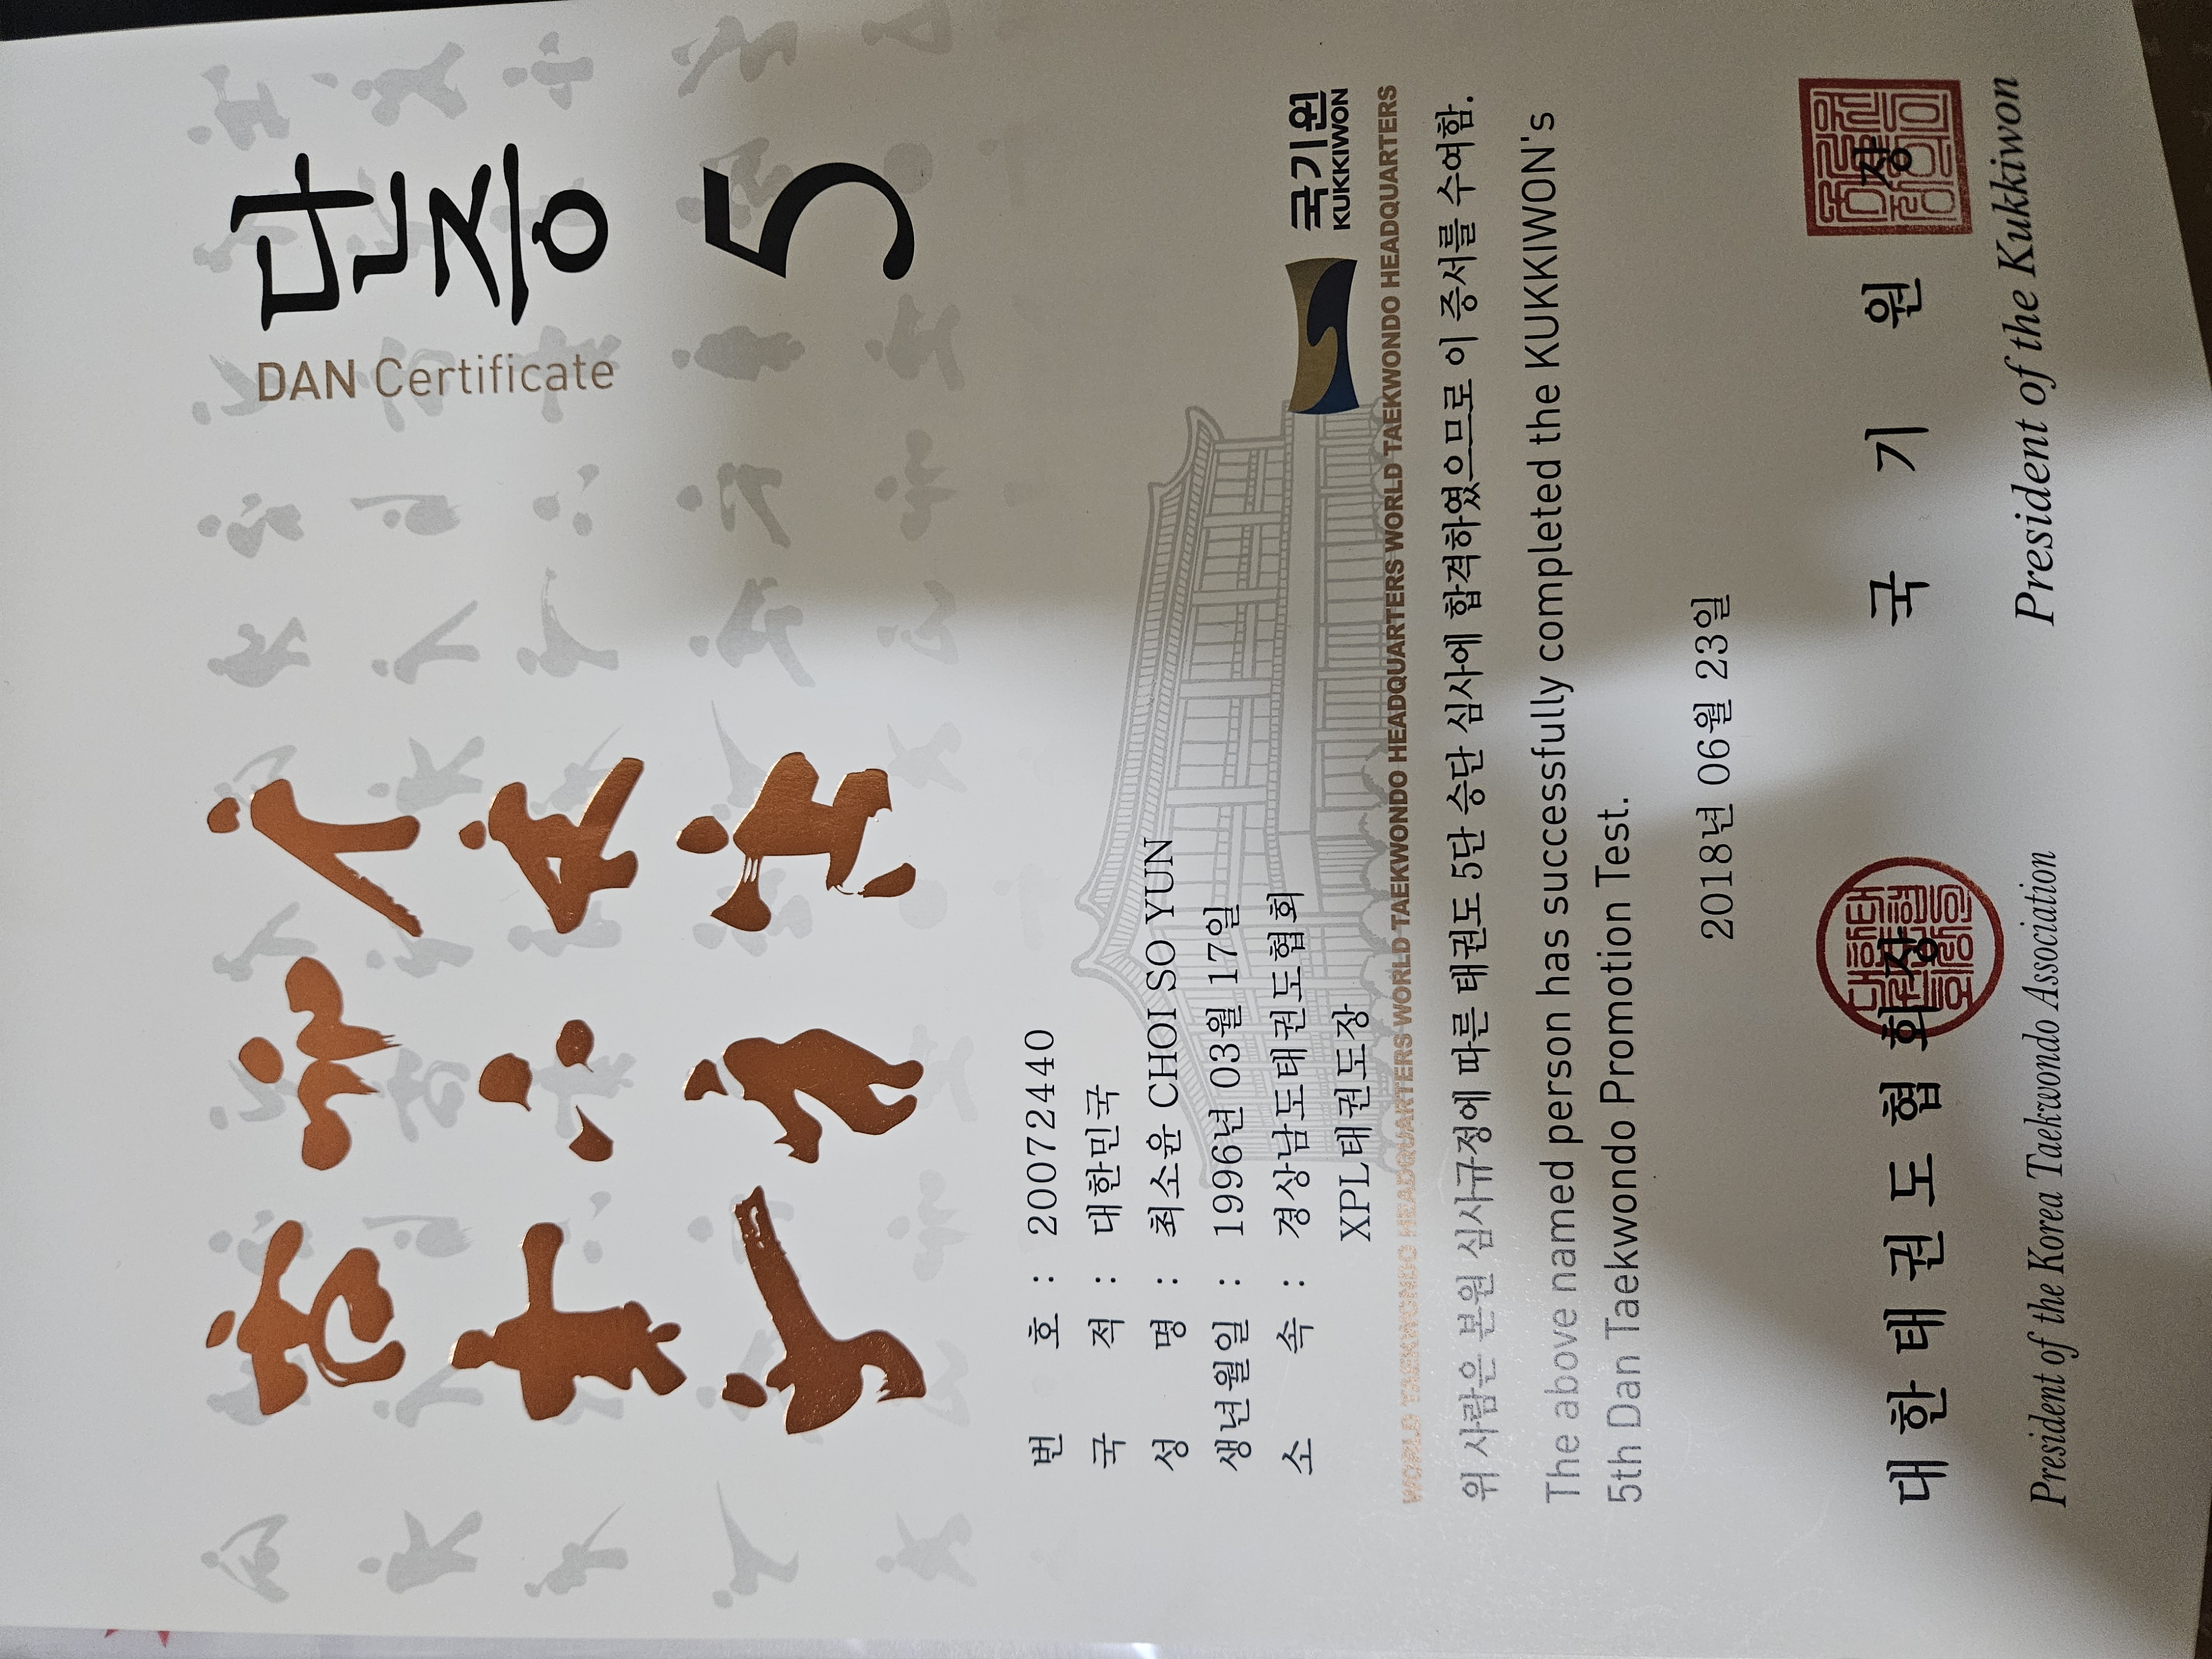 단증
DAN Certificate
5
번 호 : 20072440
국 적 : 대한민국
성 명 : 최소윤 CHOI SO YUN
생년월일 : 1996년 03월 17일
소 속 : 경상남도태권도협회
XPL태권도장
국기원
KUKKIWON
WORLD TAEKWONDO HEADQUARTERS WORLD TAEKWONDO HEADQUARTERS WORLD TAEKWONDO HEADQUARTERS WORLD TAEKWONDO HEADQUARTERS
위 사람은 본원 심사규정에 따른 태권도 5단 승단 심사에 합격하였으므로 이 증서를 수여함.
The above named person has successfully completed the KUKKIWON's
5th Dan Taekwondo Promotion Test.
2018년 06월 23일
대한태권도협회장 국기원장
President of the Korea Taekwondo Association President of the Kukkiwon